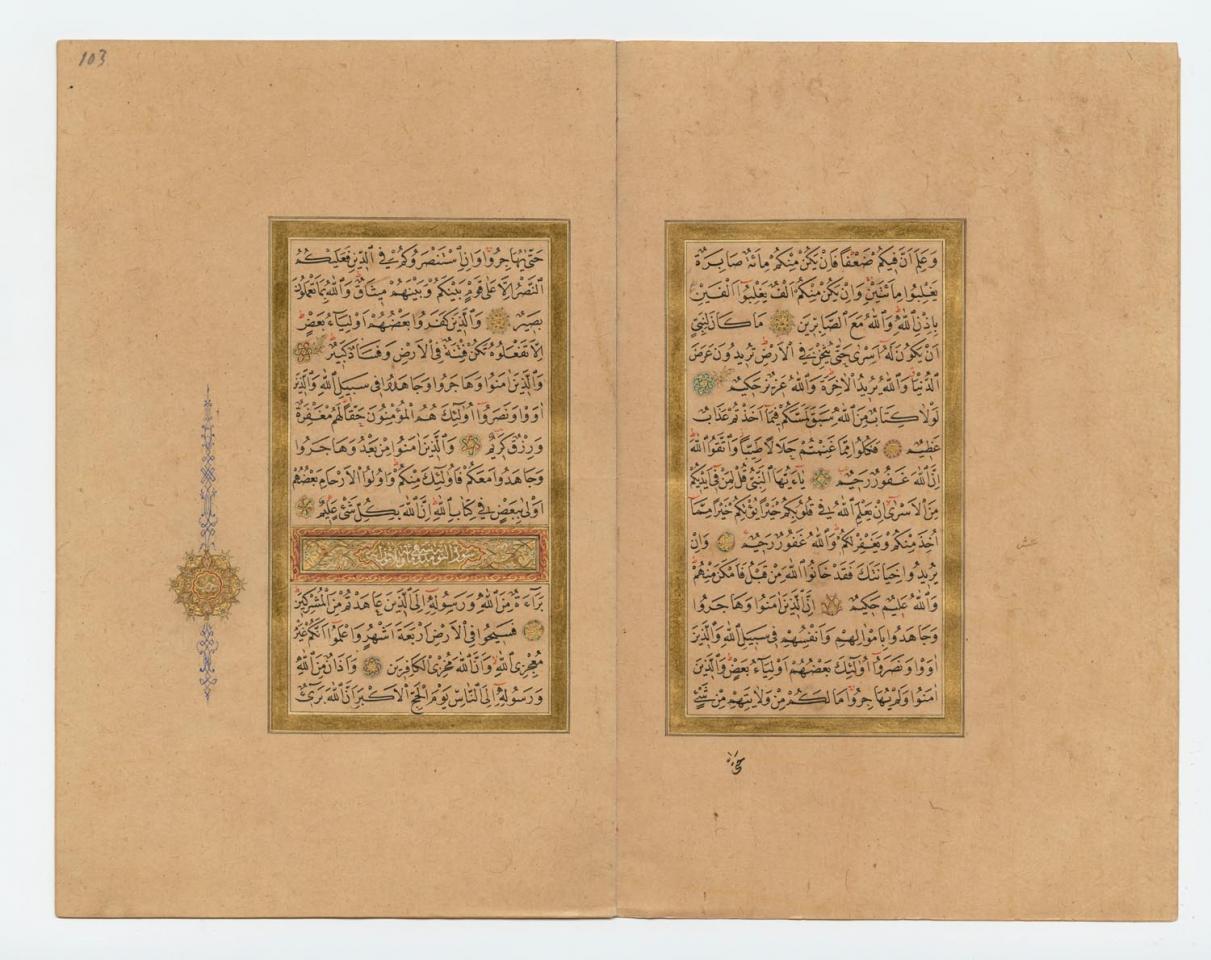 وَعَلِمَ اَنَّ فِيكُمْ ضَعْفًا فَاِنْ يَكُنْ مِنْكُمْ مِائَةٌ صَابِرَةٌ
يَغْلِبُوا مِائَتَيْنِ وَاِنْ يَكُنْ مِنْكُمْ اَلْفٌ يَغْلِبُوا اَلْفَيْنِ
بِاِذْنِ اللّٰهِ وَاللّٰهُ مَعَ الصَّابِرِينَ مَا كَانَ لِنَبِيٍّ
اَنْ يَكُونَ لَهُ اَسْرٰى حَتّٰى يُثْخِنَ فِي الْاَرْضِ تُرِيدُونَ عَرَضَ
الدُّنْيَا وَاللّٰهُ يُرِيدُ الْاٰخِرَةَ وَاللّٰهُ عَزِيزٌ حَكِيمٌ
لَوْلَا كِتَابٌ مِنَ اللّٰهِ سَبَقَ لَمَسَّكُمْ فِيمَا اَخَذْتُمْ عَذَابٌ
عَظِيمٌ فَكُلُوا مِمَّا غَنِمْتُمْ حَلَالًا طَيِّبًا وَاتَّقُوا اللّٰهَ
اِنَّ اللّٰهَ غَفُورٌ رَحِيمٌ يَاۤ اَيُّهَا النَّبِيُّ قُلْ لِمَنْ فِي اَيْدِيكُمْ
مِنَ الْاَسْرٰى اِنْ يَعْلَمِ اللّٰهُ فِي قُلُوبِكُمْ خَيْرًا يُؤْتِكُمْ خَيْرًا مِمَّا
اُخِذَ مِنْكُمْ وَيَغْفِرْ لَكُمْ وَاللّٰهُ غَفُورٌ رَحِيمٌ وَاِنْ
يُرِيدُوا خِيَانَتَكَ فَقَدْ خَانُوا اللّٰهَ مِنْ قَبْلُ فَاَمْكَنَ مِنْهُمْ
وَاللّٰهُ عَلِيمٌ حَكِيمٌ اِنَّ الَّذِينَ اٰمَنُوا وَهَاجَرُوا
وَجَاهَدُوا بِاَمْوَالِهِمْ وَاَنْفُسِهِمْ فِي سَبِيلِ اللّٰهِ وَالَّذِينَ
اٰوَوْا وَنَصَرُوا اُولٰئِكَ بَعْضُهُمْ اَوْلِيَاءُ بَعْضٍ وَالَّذِينَ
اٰمَنُوا وَلَمْ يُهَاجِرُوا مَا لَكُمْ مِنْ وَلَايَتِهِمْ مِنْ شَيْءٍ
حَتّٰى
103
حَتّٰى يُهَاجِرُوا وَاِنِ اسْتَنْصَرُوكُمْ فِي الدِّينِ فَعَلَيْكُمُ
النَّصْرُ اِلَّا عَلٰى قَوْمٍ بَيْنَكُمْ وَبَيْنَهُمْ مِيثَاقٌ وَاللّٰهُ بِمَا تَعْمَلُونَ
بَصِيرٌ وَالَّذِينَ كَفَرُوا بَعْضُهُمْ اَوْلِيَاءُ بَعْضٍ
اِلَّا تَفْعَلُوهُ تَكُنْ فِتْنَةٌ فِي الْاَرْضِ وَفَسَادٌ كَبِيرٌ
وَالَّذِينَ اٰمَنُوا وَهَاجَرُوا وَجَاهَدُوا فِي سَبِيلِ اللّٰهِ وَالَّذِينَ
اٰوَوْا وَنَصَرُوا اُولٰئِكَ هُمُ الْمُؤْمِنُونَ حَقًّا لَهُمْ مَغْفِرَةٌ
وَرِزْقٌ كَرِيمٌ وَالَّذِينَ اٰمَنُوا مِنْ بَعْدُ وَهَاجَرُوا
وَجَاهَدُوا مَعَكُمْ فَاُولٰئِكَ مِنْكُمْ وَاُولُوا الْاَرْحَامِ بَعْضُهُمْ
اَوْلٰى بِبَعْضٍ فِي كِتَابِ اللّٰهِ اِنَّ اللّٰهَ بِكُلِّ شَيْءٍ عَلِيمٌ
سورة التوبة
بَرَاءَةٌ مِنَ اللّٰهِ وَرَسُولِهِ اِلَى الَّذِينَ عَاهَدْتُمْ مِنَ الْمُشْرِكِينَ
فَسِيحُوا فِي الْاَرْضِ اَرْبَعَةَ اَشْهُرٍ وَاعْلَمُوا اَنَّكُمْ غَيْرُ
مُعْجِزِي اللّٰهِ وَاَنَّ اللّٰهَ مُخْزِي الْكَافِرِينَ وَاَذَانٌ مِنَ اللّٰهِ
وَرَسُولِهِ اِلَى النَّاسِ يَوْمَ الْحَجِّ الْاَكْبَرِ اَنَّ اللّٰهَ بَرِيءٌ